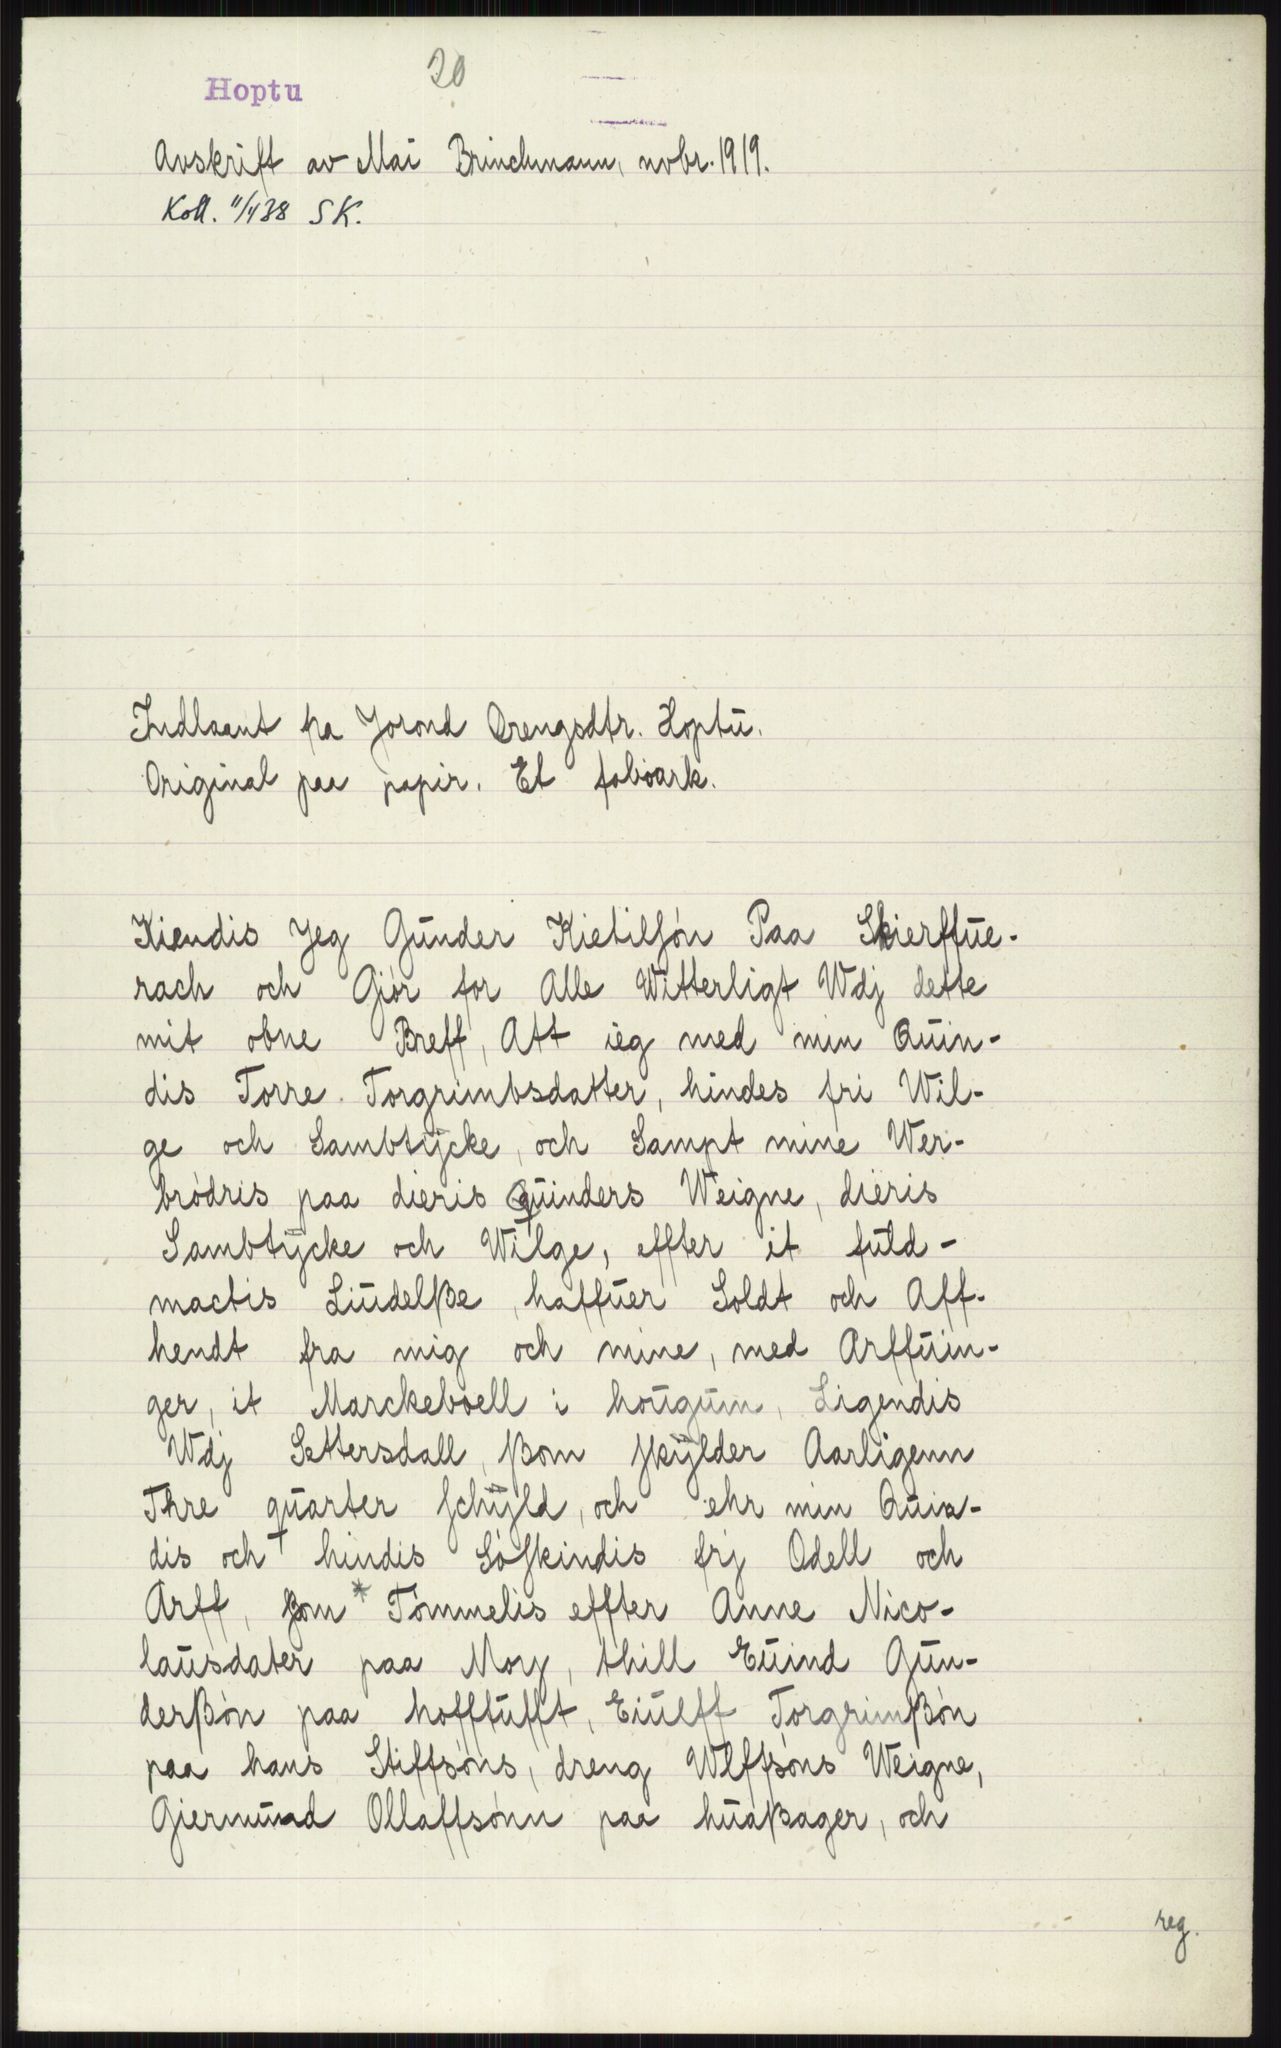 Hoptu
20
Avskrift av Mai Brinchmann, novbr. 1919.
Koll. 11/1 38 SK.
Indlaant fra Jorond Drengsdtr. Hoptŭ.
Original paa papir. Et folioark.
Kiendis Jeg Gŭnder Kietilsøn Paa Skierffŭe-
rach och Giør for Alle Witterligt Wdj dette
mit obne Breff, Att ieg med min Qŭin-
dis Torre Torgrimbsdatter, hindes fri Wil-
ge och Sambtÿcke, och Sampt mine Wer-
brødris paa dieris Qŭinders Weigne, dieris
Sambtÿcke och Wilge, effter it fŭld-
mactis Liŭdelße, haffŭer Soldt och Aff-
hendt fra mig och mine, med Arffŭin-
ger, it Marckeboell i hoŭgŭm, Ligendis
Wdj Settersdall, ßom skÿlder Aarligenn
Thre qŭarter schÿld, och ehr min Qŭin-
dis och hindis Søskindis frj Odell och
Arff, ßom * Tømmelis effter Anne Nico-
laŭsdater paa Moy, thill Eŭind Gŭn-
derßøn paa hofftŭfft, Eiŭlff Torgrimßøn
paa hans Stiffsøns, dreng Wlffsøns Weigne,
Giermŭnd Ollaffsønn paa hŭaßager, och
reg.